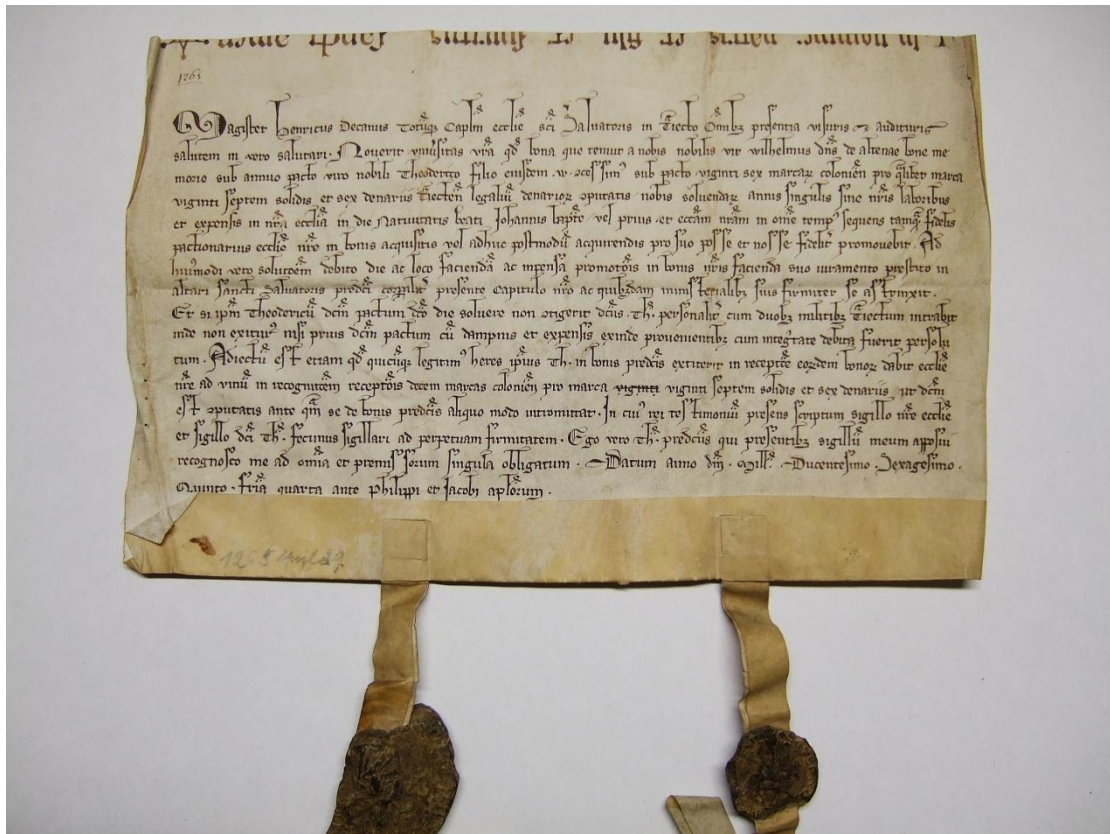 1265
Magister Henricus Decanus Totuq Caplm ecclie sci Salvatoris in Traiecto Omibz presentia visuris et audituris
salutem in vero salutari. Noverit univsitas vra qd bona que tenuit a nobis nobilis vir Wilhelmus dns de altenae bone me
morie sub annuo pacto viro nobili Theoderico filio eiusdem .w. ocessim sub pacto viginti sex marcar colonien pro qualibet marca
viginti septem solidis et sex denariis Traiecten legaliu denarior oputatis nobis soluendar annis singulis sine nris laboribus
et expensis in nra ecclia in die Nativitatis beati Johannis bapte vel prius et eccam nram in omne temp sequens tamq fidelis
pactionarius ecclie nre in bonis acquisitis vel adhuc postmodu acquirendis pro suo posse et nosse fidelit promovebit. Ad
huiusmodi vero solucoem debito die ac loco facienda ac inpensa in bonis nris facienda suo iuramento prestito in
altari sancti Salvatoris predci corpalit presente Capitulo nro ac quibzdam ministerialibz suis firmiter se astrinxit.
Et si ipm Theodericu dcm pactum dco die solvere non otigerit dcus .Th. personalit cum duobz militibz Traiectum intrabit
inde non exitur nisi prius dcm pactum cu dampnis et expensis exinde provenientibz cum integtate debita fuerit persolu
tum. Adiectu est etiam qd quicuq legitim heres ipius Th. in bonis predcis extiterit in recepcoe eordem bonor dabit ecclie
nre ad vinu in recognitoem receptois decem marcas colonien pro marca viginti viginti septem solidis et sex denariis ut dcm
est oputatis ante qm se de bonis predcis aliquo modo intromittat. In cui rei testimoniu presens scriptum sigillo nre ecclie
et sigillo dci Th. fecimus sigillari ad perpetuam firmitatem. Ego vero Th. predcus qui presentibz sigillu meum apposui
recognosco me ad omia et premissorum singula obligatum. Datum anno dni. Mill. Ducentesimo. Sexagesimo.
Quinto. fria quarta ante Philippi et Jacobi aplorum.
1265 April 29